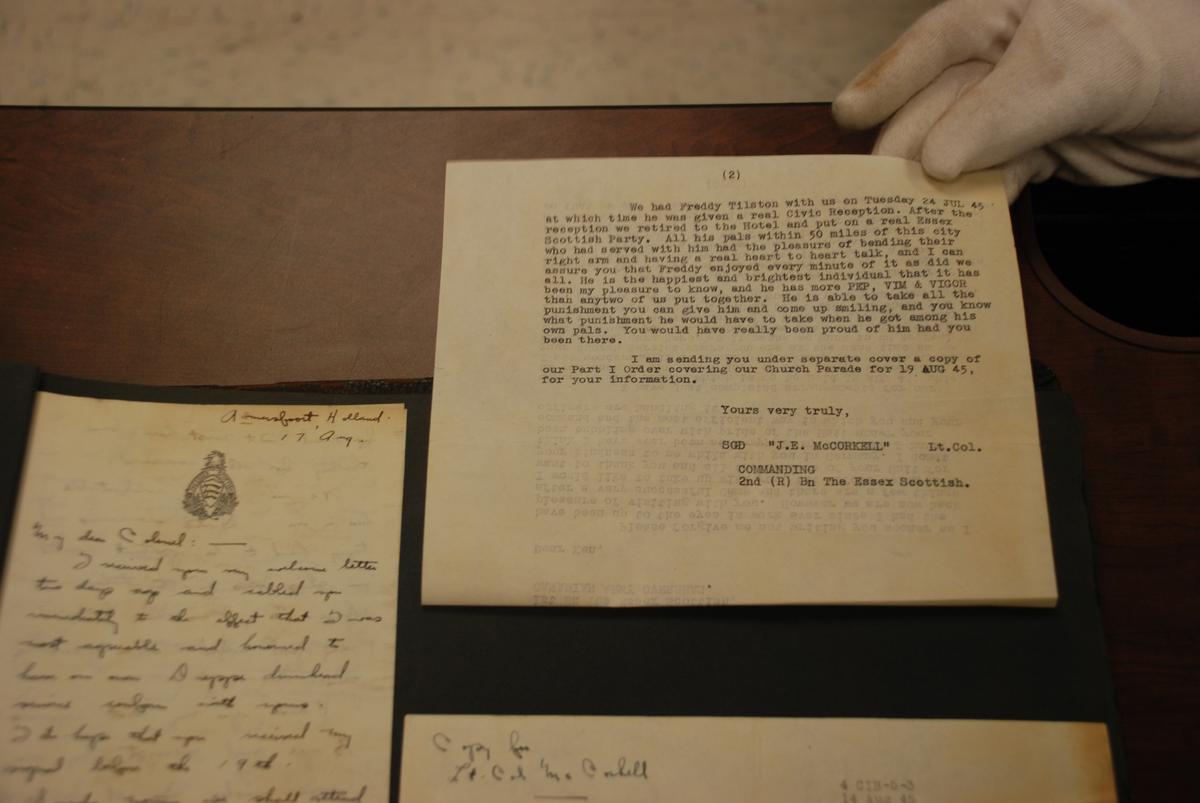 (2)
We had Freddy Tilston with us on Tuesday 24 JUL 45
at which time he was given a real Civic Reception. After the
reception we retired to the Hotel and put on a real Essex
Scottish Party. All his pals within 50 miles of this city
who had served with him had the pleasure of bending their
right arm and having a real heart to heart talk, and I can
assure you that Freddy enjoyed every minute of it as did we
all. He is the happiest and brightest individual that it has
been my pleasure to know, and he has more PEP, VIM & VIGOR
than anytwo of us put together. He is able to take all the
punishment you can give him and come up smiling, and you know
what punishment he would have to take when he got among his
own pals. You would have really been proud of him had you
been there.
I am sending you under separate cover a copy of
our Part I Order covering our Church Parade for 19 AUG 45,
for your information.
Yours very truly,
SGD "J.E. McCORKELL" Lt.Col.
COMMANDING
2nd (R) Bn The Essex Scottish.
Amersfoort, Holland.
17 Aug.
My dear Colonel: —
I received your very welcome letter
two days ago and cabled you
immediately to the effect that I was
most agreeable and honored to
have our own Dieppe drumhead
service with yours.
I do hope that you received my
signal before the 19th.
shall attend
Copy for
Lt. Col McCorkell
4 CIB-5-3
14 Aug 45